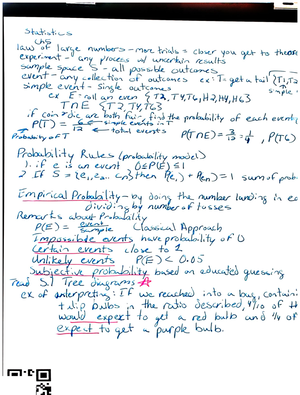 Statistics
law of large numbers - more trials = closer you get to
experiment - any process w/ uncertain results
sample space S - all possible outcomes
event - any collection of outcomes ex: T = get a tail {T1, T2
simple event = Single outcomes
simple
ex E = roll an even {T2, T4, T6, H2, H4, H6}
T∩E {T2, T4, T6}
if coin + dic are both fair, find the probability of each event
P(T) = 6/12 ← simple events in T
← total events
P(T∩E) = 3/12 = 1/4, P(T6)
Probability of T
Probability Rules (probability model)
1. if E is an event, 0≤P(E)≤1
2 If S = {e1, e2... en} then P(e1) + P(en) = 1 sum of prob
Empirical Probability - by doing the number landing in
dividing by number of tosses
Remarks about Probability
P(E) = event/sample Classical Approach
Impossible events have probability of 0
Certain events close to 1
Unlikely events P(E) < 0.05
Subjective probability based on educated guessing
read 5.1 Tree diagrams
ex of interpreting: If we reached into a bag, contain
tulip bulbs in the ratio described, 4/10 of
would expect to get a red bulb and 1/4 of
expect to get a purple bulb.